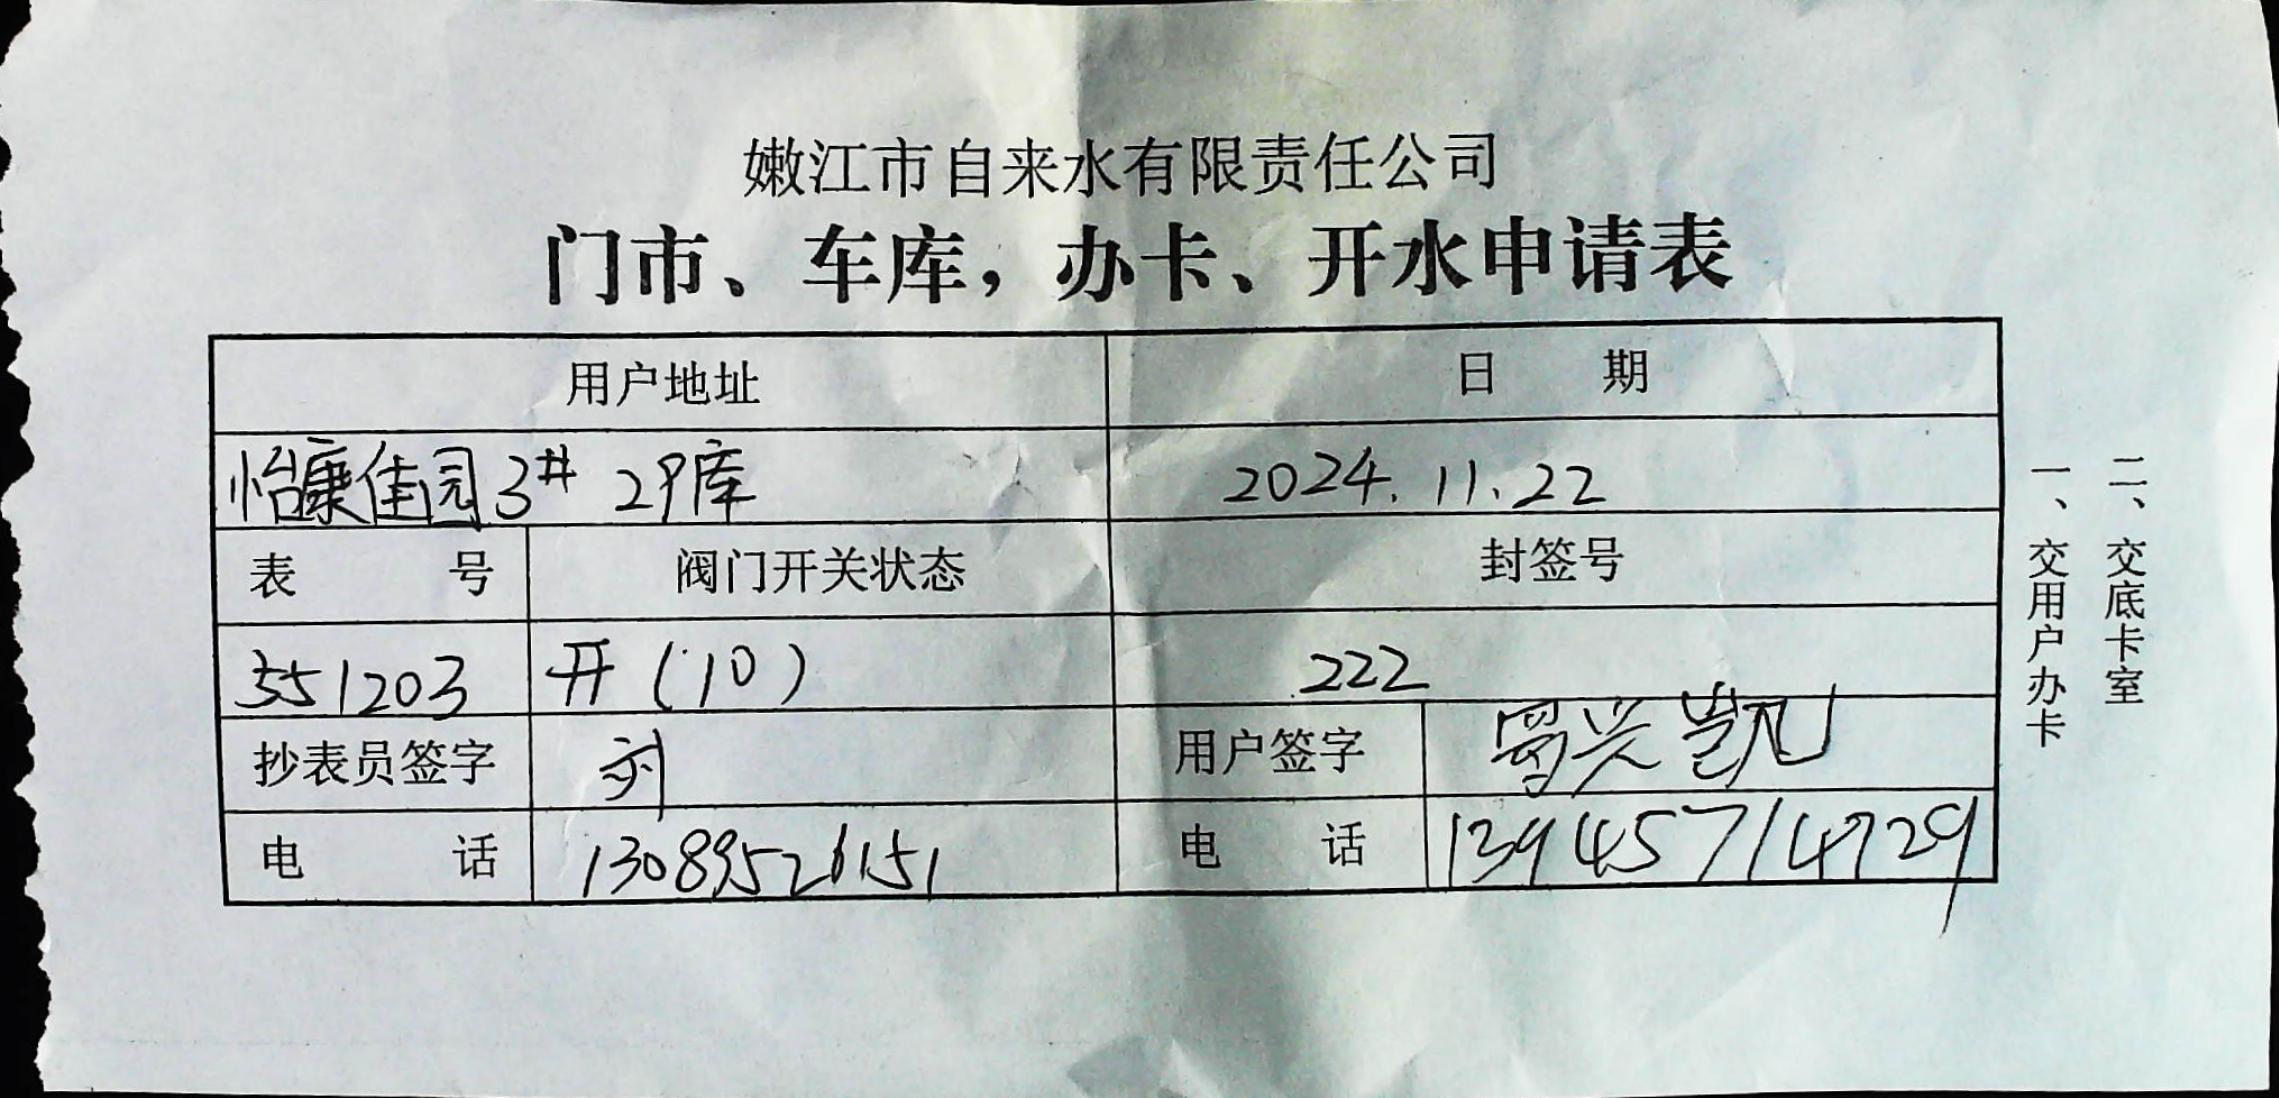 嫩江市自来水有限责任公司
门市、车库，办卡、开水申请表
用户地址 日 期
怡康佳园3# 29库 2024.11.22
表 号 阀门开关状态 封签号
551203 开(10) 222
抄表员签字 刘 用户签字 兴凯
电 话 13089526151 电 话 13945714729
一、交用户办卡
二、交底卡室